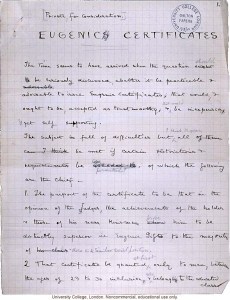 [Privately for Consideration]
1.
EUGENICS CERTIFICATES
The time seems to have arrived when the question
be seriously discussed, whether it be practicable &
advisable to issue Eugenic Certificates, that would
ought to be accepted as trustworthy, & be
yet self supporting.
The subject is full of difficulties but all of them
can I think be met if certain
requirements be of which the following
are the chief
1. The purport of the certificate to be that in the
opinion of the judges the achievements of the holder
& those of his near kinsmen him to be
distinctly superior in Eugenic Gifts to the majority
of
2. That certificates be granted only to men between
the ages of 23 to 30 inclusive, & belonging to the educated
classes
University College, London. Noncommercial, educational use only.